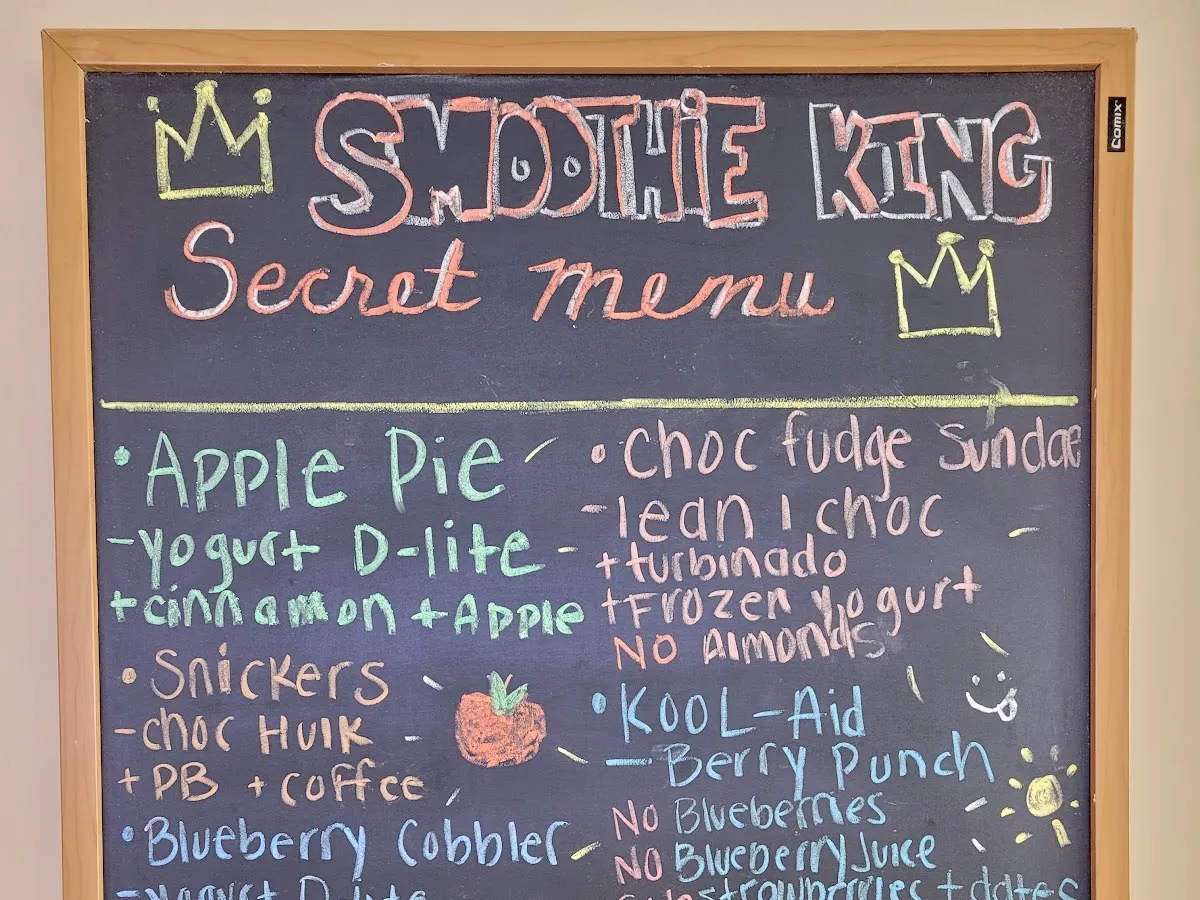 SMOOTHiE KING
Secret menu
Comix
• Apple Pie
- Yogurt D-lite
+ cinnamon + Apple
• Snickers
- choc HUlK
+ PB + coffee
• Blueberry Cobbler
- Yogurt D-lite
• Choc fudge Sundae
- lean 1 choc
+ turbinado
+ Frozen yogurt
NO almonds
• KOOL-Aid
- Berry Punch
NO Blueberries
NO Blueberry Juice
strawberries + dates